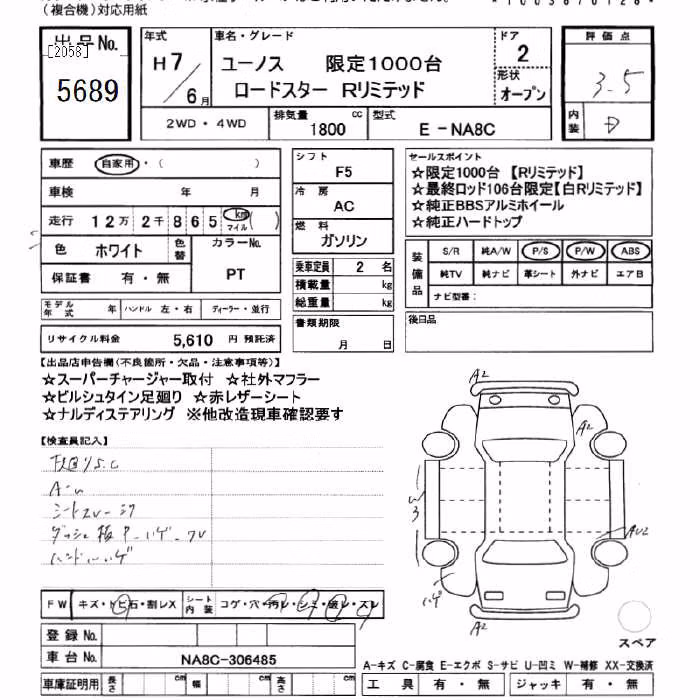 (複合機)対応用紙
出品No.
[2058]
5689
年式
H7/6月
車名・グレード
ユーノス 限定1000台
ロードスター Rリミテッド
ドア
2
形状
オープン
評価点
3.5
内装
D
2WD・4WD
排気量
1800 cc
型式
E-NA8C
車歴 自家用・( )
車検 年 月
走行 12万2千865 km マイル ( )
色 ホワイト 色替 カラーNo.
PT
保証書 有・無
モデル年式 年 ハンドル 左・右 ディーラー・並行
リサイクル料金 5,610 円 預託済
シフト
F5
冷房
AC
燃料
ガソリン
乗車定員 2 名
積載量 kg
総重量 kg
書類期限
月 日
セールスポイント
☆限定1000台 【Rリミテッド】
☆最終ロッド106台限定【白Rリミテッド】
☆純正BBSアルミホイール
☆純正ハードトップ
装備品
S/R 純A/W P/S P/W ABS
純TV 純ナビ 革シート 外ナビ エアB
ナビ型番:
後日品
【出品店申告欄(不良箇所・欠品・注意事項等)】
☆スーパーチャージャー取付 ☆社外マフラー
☆ビルシュタイン足廻り ☆赤レザーシート
☆ナルディステアリング ※他改造現車確認要す
【検査員記入】
A2
A2
ハゲ
A2
FW キズ・トビ石・割レX シート内装 コゲ・穴・汚レ・シミ・破レ・スレ
登録No.
車台No. NA8C-306485
車庫証明用 長さ cm 幅 cm 高さ cm
スペア
A-キズ C-腐食 E-エクボ S-サビ U-凹ミ W-補修 XX-交換済
工具 有・無 ジャッキ 有・無